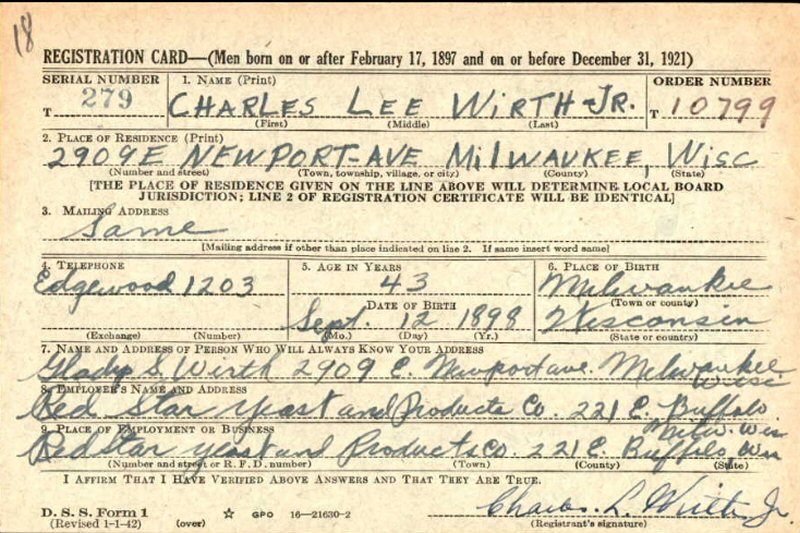 18
REGISTRATION CARD—(Men born on or after February 17, 1897 and on or before December 31, 1921)
SERIAL NUMBER 1. NAME (Print) ORDER NUMBER
T 279 CHARLES LEE WIRTH-JR. T 10799
(First) (Middle) (Last)
2. PLACE OF RESIDENCE (Print)
2909 E NEWPORT-AVE MILWAUKEE, WISC
(Number and street) (Town, township, village, or city) (County) (State)
[THE PLACE OF RESIDENCE GIVEN ON THE LINE ABOVE WILL DETERMINE LOCAL BOARD
JURISDICTION; LINE 2 OF REGISTRATION CERTIFICATE WILL BE IDENTICAL]
3. MAILING ADDRESS
Same
[Mailing address if other than place indicated on line 2. If same insert word same]
4. TELEPHONE 5. AGE IN YEARS 6. PLACE OF BIRTH
Edgewood 1203 43 Milwaukee
DATE OF BIRTH (Town or county)
Sept. 12 1898 Wisconsin
(Exchange) (Number) (Mo.) (Day) (Yr.) (State or country)
7. NAME AND ADDRESS OF PERSON WHO WILL ALWAYS KNOW YOUR ADDRESS
Gladys S. Wirth 2909 E. Newport ave. Milwaukee
Wisc
8. EMPLOYER'S NAME AND ADDRESS
Red Star Yeast and Products Co. 221 E. Buffalo
Milw. Wis
9. PLACE OF EMPLOYMENT OR BUSINESS
Red Star Yeast and Products Co. 221 E. Buffalo, Wis
(Number and street or R. F. D. number) (Town) (County) (State)
I AFFIRM THAT I HAVE VERIFIED ABOVE ANSWERS AND THAT THEY ARE TRUE.
Charles L. Wirth Jr
D. S. S. Form 1
(Revised 1-1-42) (over) ☆ GPO 16—21630-2 (Registrant's signature)